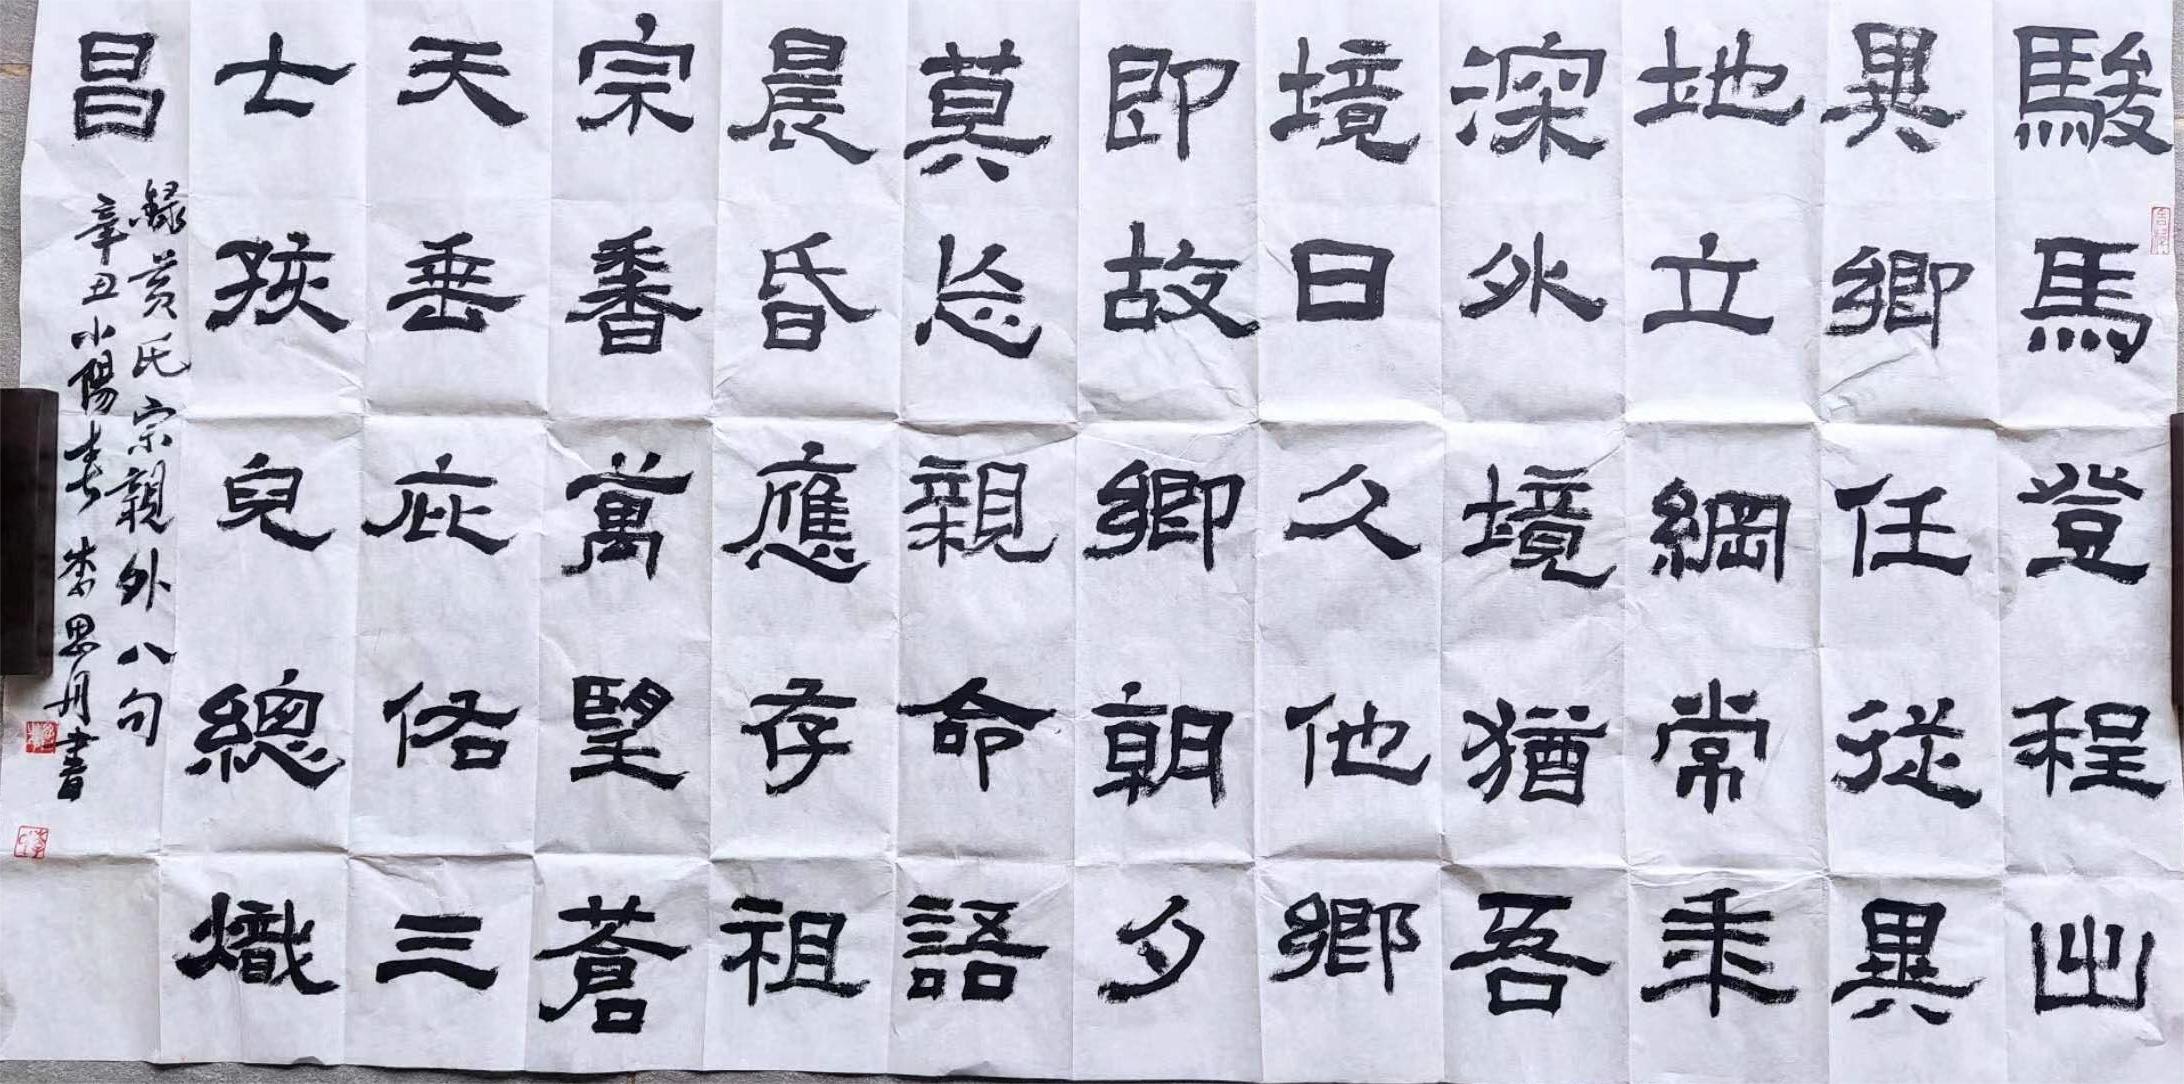 駿馬登程出
異鄉任從異
地立綱常年
深外境猶吾
境日久他鄉
即故鄉朝夕
莫忘親命語
晨昏應存祖
宗香萬望蒼
天垂庇佑三
七孩兒總熾
昌
錄黃氏宗親外八句
辛丑小陽春李思丹書